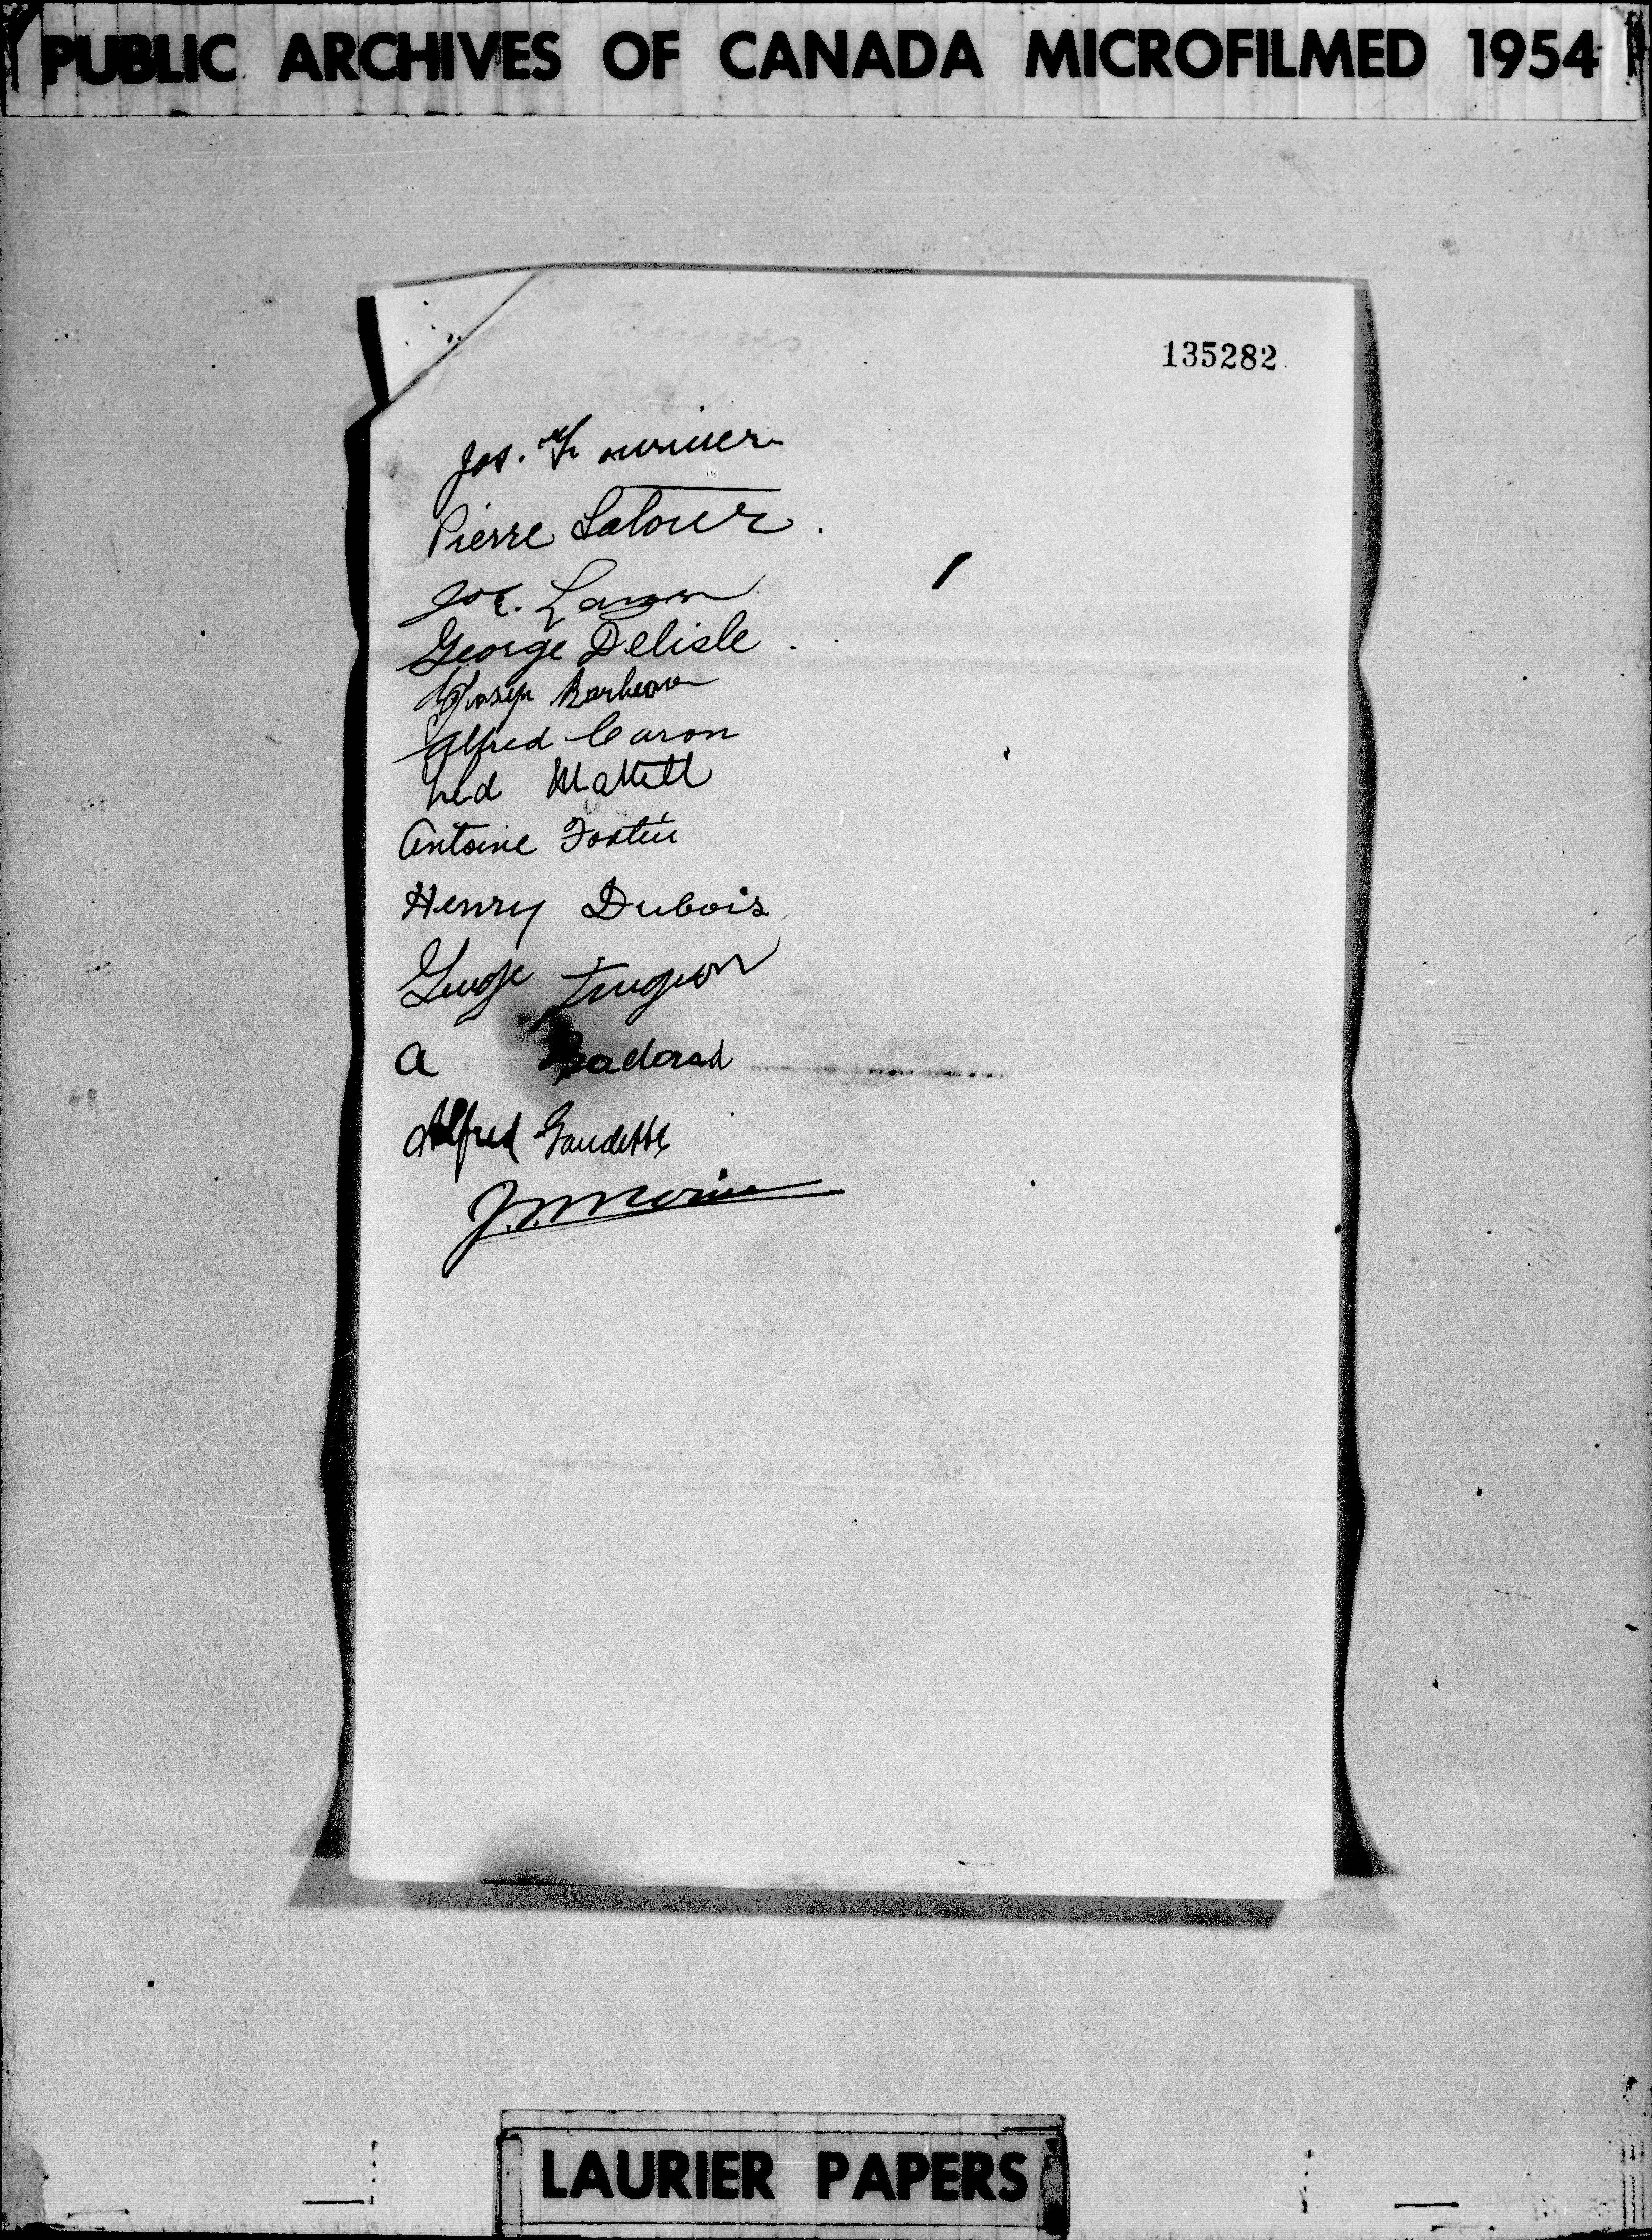 PUBLIC ARCHIVES OF CANADA MICROFILMED 1954
135282
Jos. Fournier
Pierre Latour.
George Delisle.
Joseph Barbeau
Alfred Caron
Antoine Fortin
Henry Dubois
George Turgeon
A
Alfred Gaudette
Morin
LAURIER PAPERS